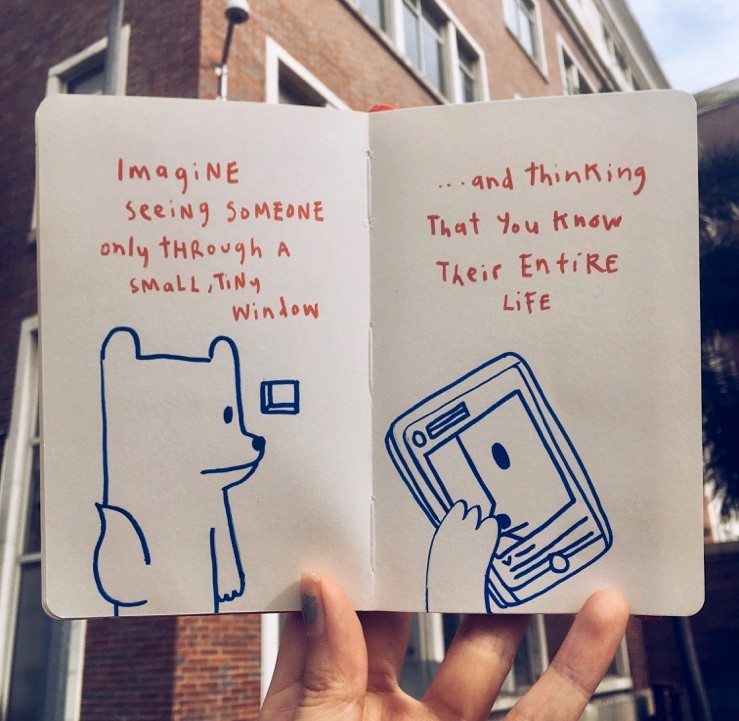 ImagiNE
seeiNg SoMEONE
only tHRough A
SMaLL, TiNy
Window
...and thinKing
That You Know
Their EntiRE
LiFE